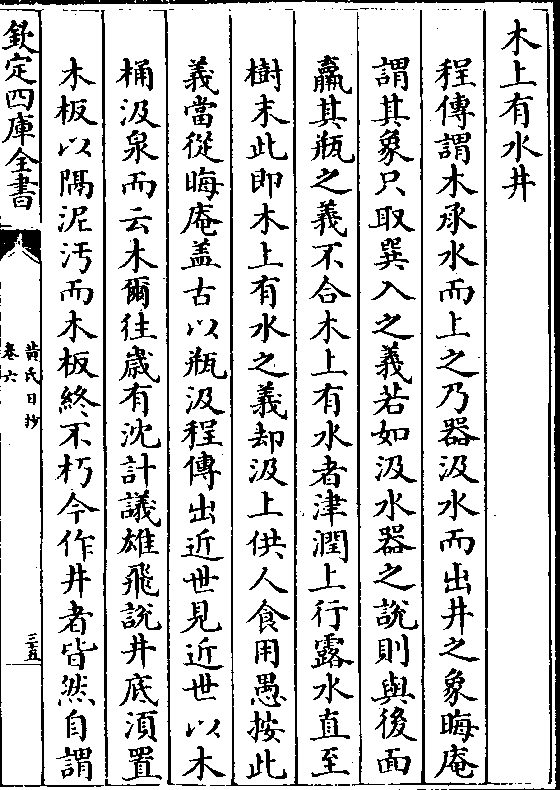 木上有水井
程傳謂木承水而上之乃器汲水而出井之象晦庵
謂其象只取巽入之義若如汲水器之說則與後面
羸其瓶之義不合木上有水者津潤上行露水直至
樹末此即木上有水之義却汲上供人食用愚按此
義當從晦庵盖古以瓶汲程傳出近世見近世以木
桶汲泉而云木爾往歲有沈計議雄飛說井底湏置
木板以隔泥汚而木板終不朽今作井者皆然自謂
欽定四庫全書
黄氏日抄
卷六
三五